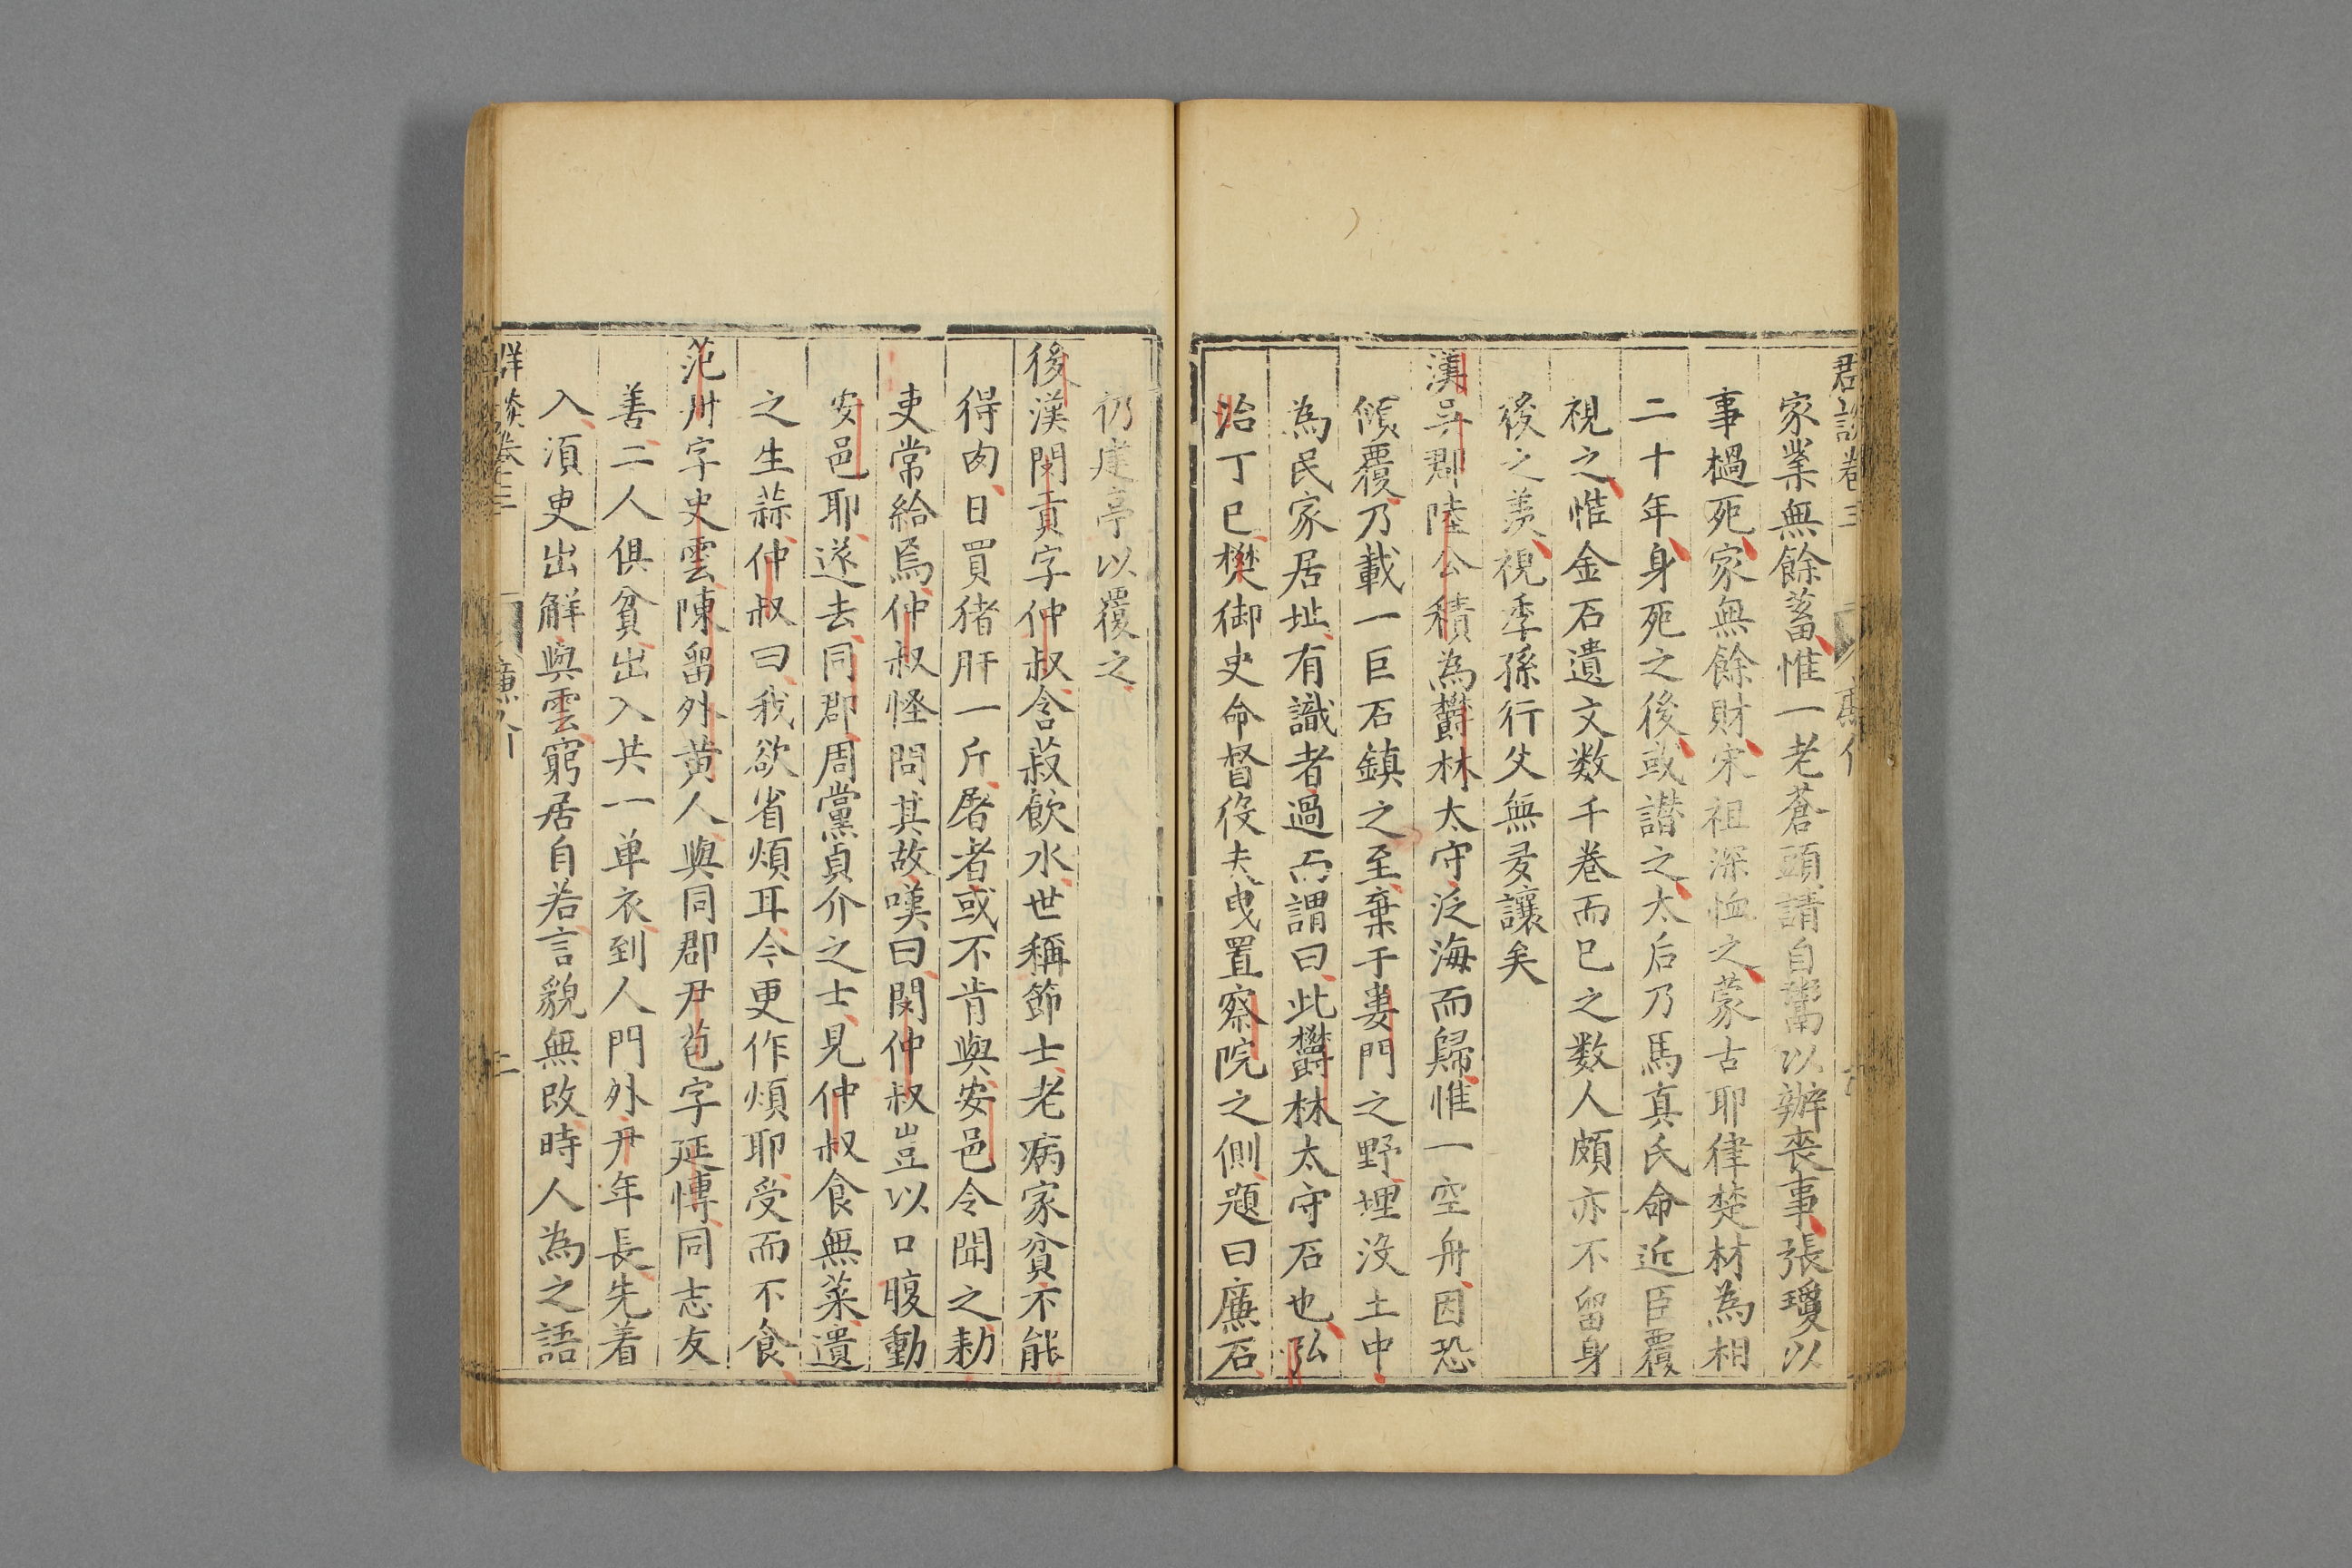 家業無餘蓄惟一老蒼頭請自鬻以辦喪事張瓊以
事撾死家無餘財宋祖深恤之蒙古耶律楚材為相
二十年身死之後或譖之太后乃馬真氏命近臣覆
視之惟金石遺文数千卷而已之数人頗亦不留身
後之羨視季孫行父無多讓矣
漢吳郡陸公積為欝林太守泛海而歸惟一空舟因恐
傾覆乃載一巨石鎮之至棄于婁門之野埋沒土中
為民家居址有識者過而謂曰此欝林太守石也弘
治丁巳樊御史命督役夫曳置察院之側題曰廉石
仍建亭以覆之
後漢閔貢字仲叔含菽飲水世稱節士老病家貧不能
得肉日買猪肝一斤屠者或不肯與安邑令聞之勑
吏常給焉仲叔怪問其故嘆曰閔仲叔豈以口腹動
安邑耶遂去同郡周黨貞介之士見仲叔食無菜遺
之生蒜仲叔曰我欲省煩耳今更作煩耶受而不食
范丹字史雲陳留外黄人與同郡尹苞字延慱同志友
善二人俱貧出入共一单衣到人門外尹年長先着
入湏吏出觧與雲窮居自若言貌無改時人為之語